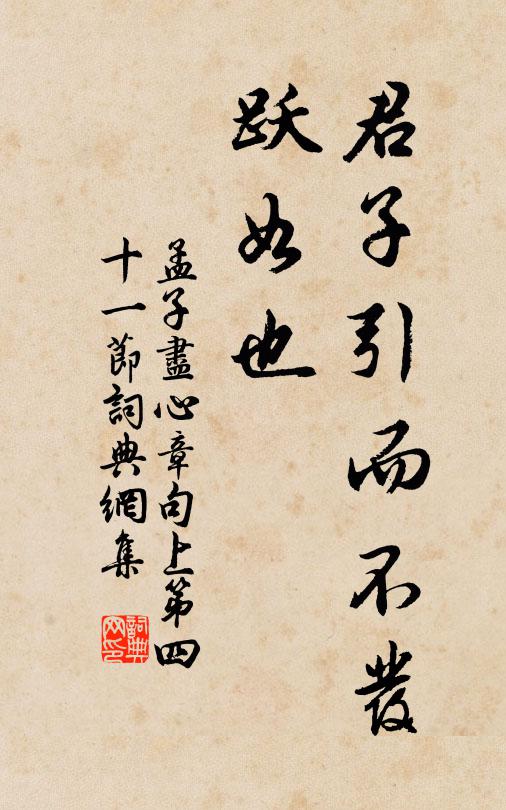 君子引而不發
跃如也
孟子盡心章句上第四
十一節詞典網集
詞典
网印